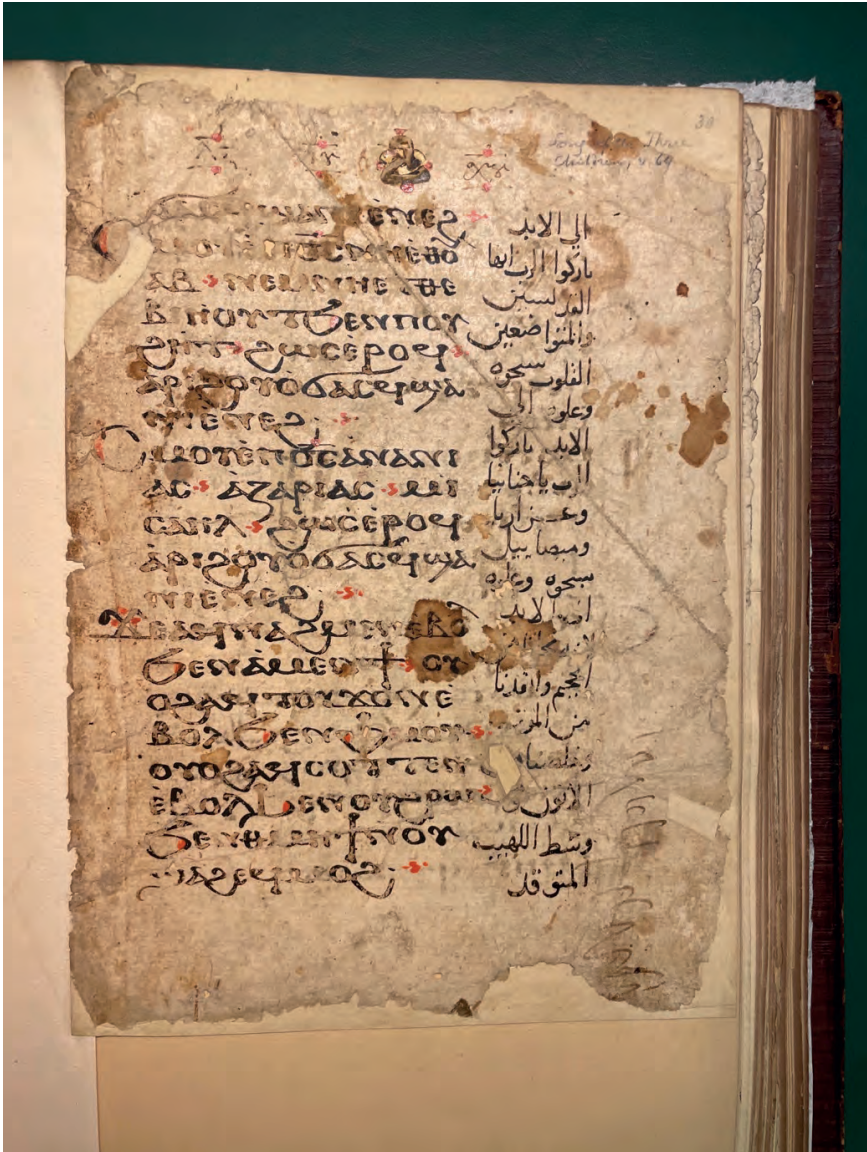 Song of the Three
Children, v. 64
ϣⲁⲛⲓⲉ̀ⲛⲉϩ
ⲥⲙⲟⲩⲉ̀ⲡⲟ̅ⲥ̅ⲛⲏⲉⲑⲟ
ⲁⲃ ⲛⲉⲙⲛⲏⲉⲧⲑⲉ
ⲃⲓⲏⲟⲩⲧϧⲉⲛⲡⲟⲩ
ϩⲏⲧ ϩⲱⲥⲉ̀ⲣⲟϥ
ⲁ̀ⲣⲓϩⲟⲩⲟ̀ϭⲁⲥϥϣⲁ
ⲛⲓⲉ̀ⲛⲉϩ
ⲥⲙⲟⲩⲉ̀ⲡⲟ̅ⲥ̅ⲁⲛⲁⲛⲓ
ⲁⲥ ⲁⲍⲁⲣⲓⲁⲥ ⲙⲓ
ⲥⲁⲏⲗ ϩⲱⲥⲉ̀ⲣⲟϥ
ⲁ̀ⲣⲓϩⲟⲩⲟ̀ϭⲁⲥϥϣⲁ
ⲛⲓⲉⲛⲉϩ
ϫⲉⲁϥⲛⲁϩⲙⲉⲛⲉⲃⲟ
ϧⲉⲛⲁ̀ⲙⲉⲛϯ ⲟⲩ
ⲟϩⲁϥⲧⲟⲩϫⲟⲛⲉ̀
ⲃⲟⲗϧⲉⲛⲫⲙⲟⲩ
ⲟⲩⲟϩⲁϥⲥⲟⲧⲧⲉⲛ
ⲉ̀ⲃⲟⲗϧⲉⲛⲟⲩϩⲣⲱ
ϧⲉⲛⲑⲙⲏϯⲛⲟⲩ
ϣⲁϩⲉϥⲙⲟϩ
الي الابد
باركوا الرب ايها
القديسين
والمتواضعين
القلوب سبحوه
وعلوه الي
الابد باركوا
الرب يا حنانيا
وعزاريا
وميصاييل
سبحوه وعلوه
الابد
الجحيم وانقذنا
من الموت
الاتون
وسط اللهيب
المتوقد